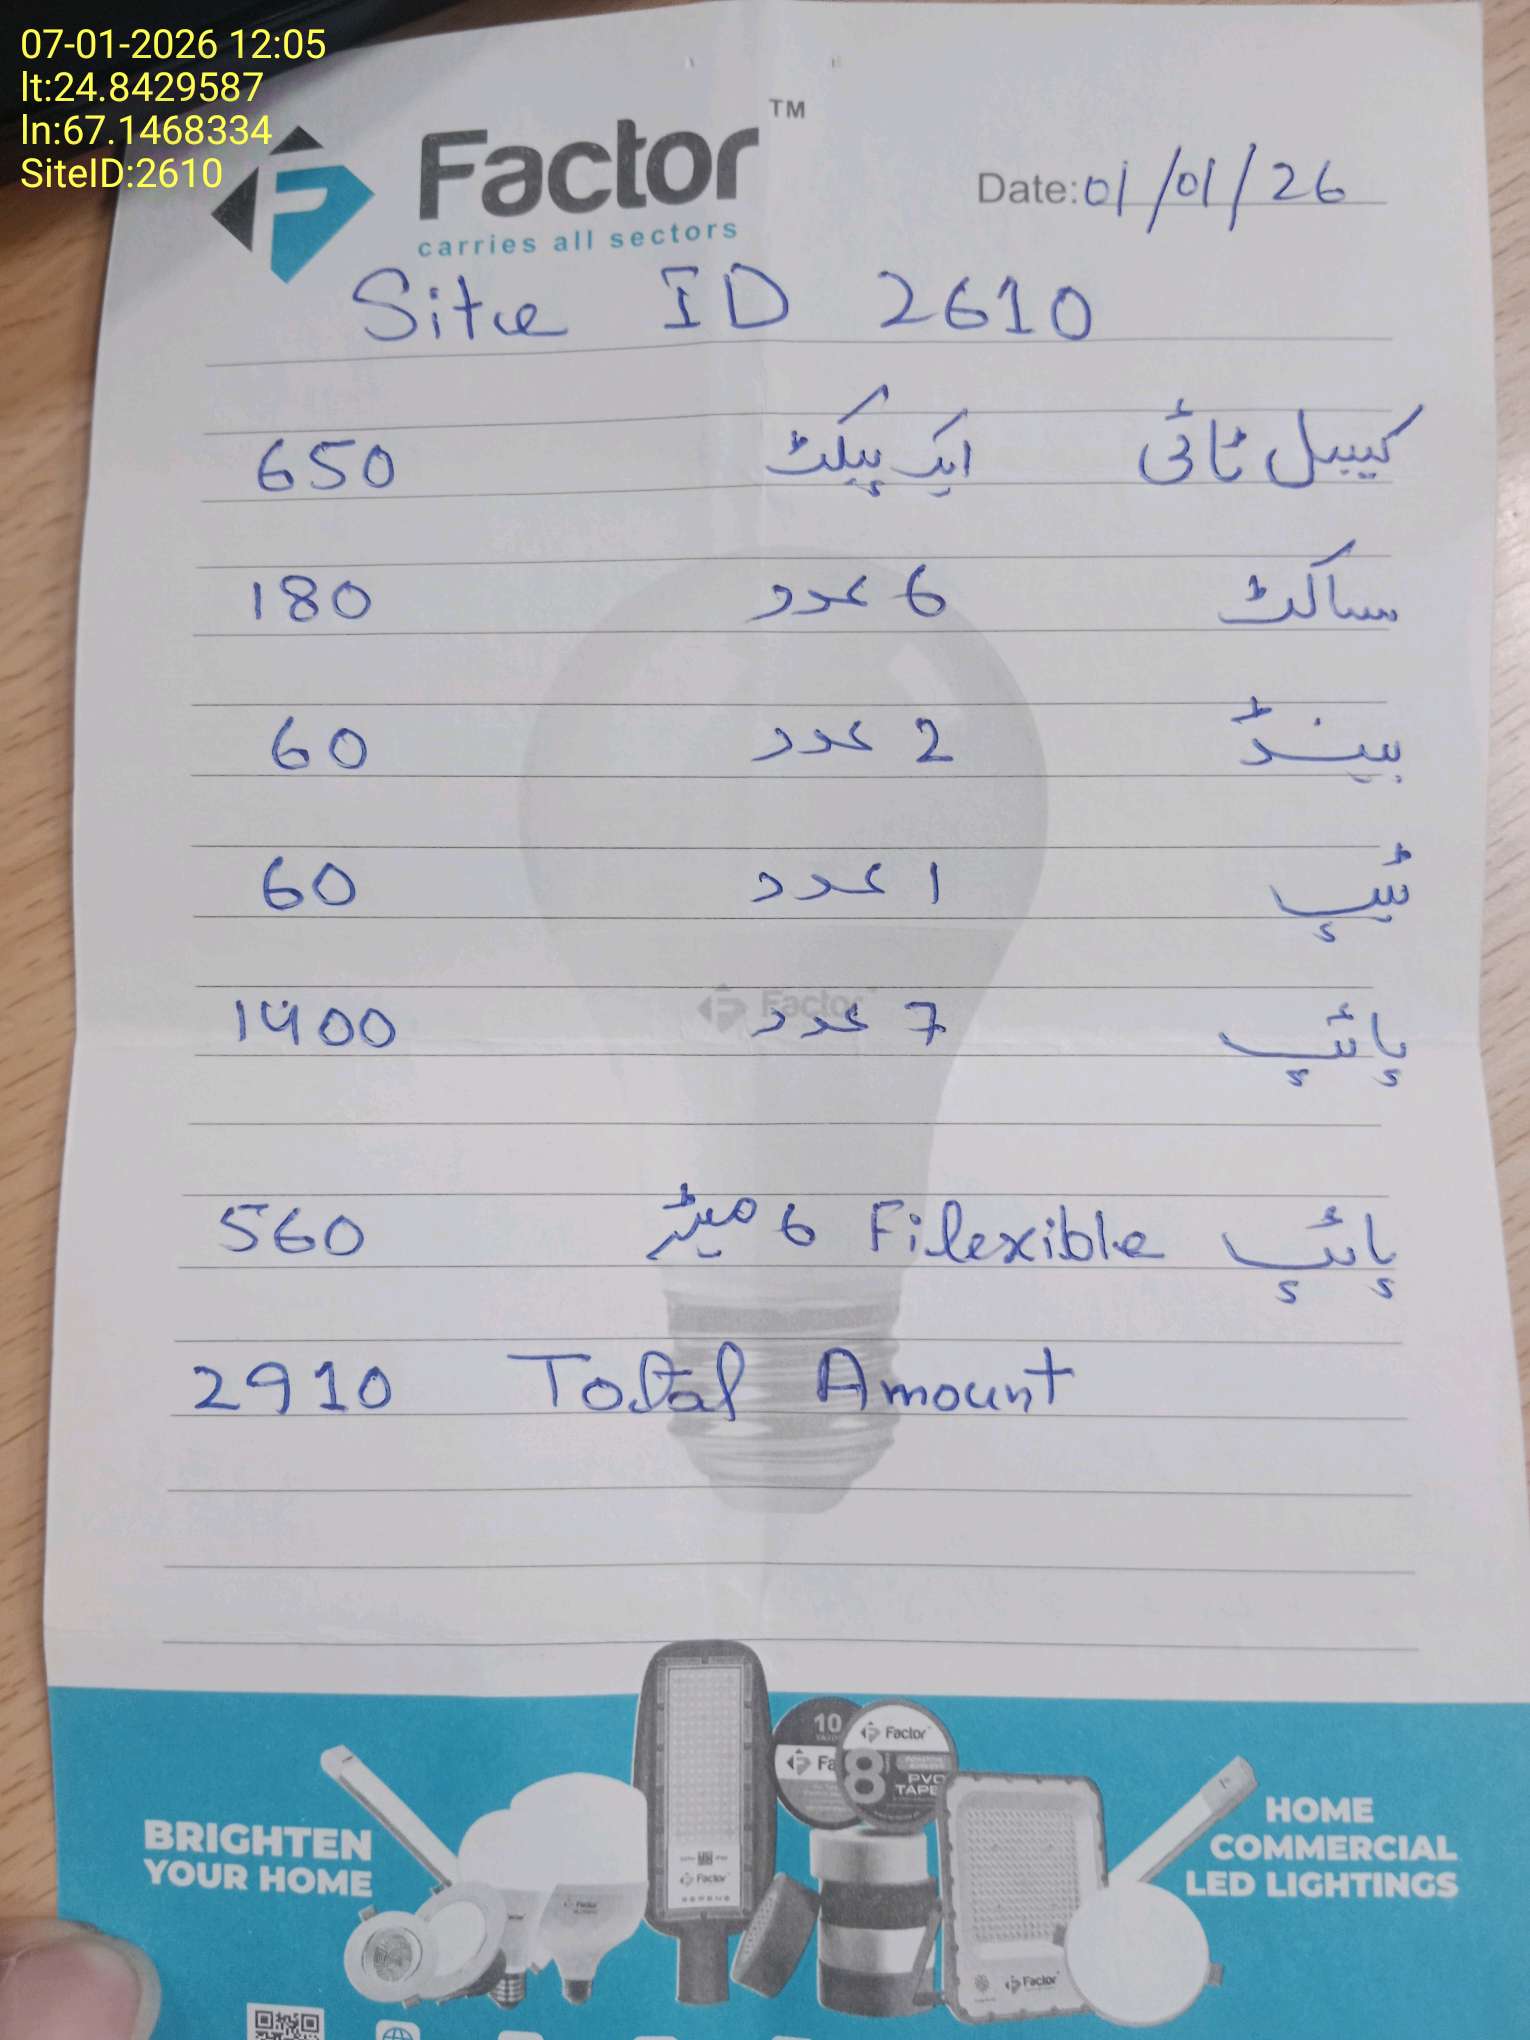 07-01-2026 12:05
lt:24.8429587
ln:67.1468334
SiteID:2610
Factor TM
carries all sectors
Date: 01/01/26
Site ID 2610
کیبل ٹائی ایک پیکٹ 650
ساکٹ 6 عدد 180
بینڈ 2 عدد 60
ٹیپ 1 عدد 60
پائپ 7 عدد 1400
Factor
پائپ Filexible 6 میٹر 560
2910 Total Amount
10
Factor
8
PVC
TAPE
Factor
Factor
BRIGHTEN
YOUR HOME
HOME
COMMERCIAL
LED LIGHTINGS